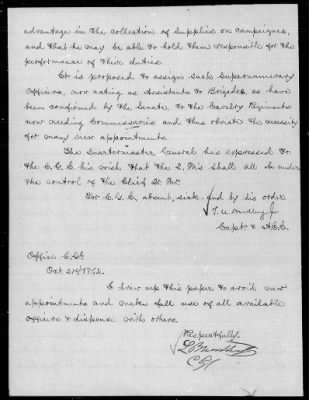 advantage in the collection of Supplies on campaigns,
and that he may be able to hold them responsible for the
performance of their duties.
It is proposed to assign such Supernumerary
Officers, now acting as Assistants to Brigades, as have
been confirmed by the Senate, to the Cavalry Regiments
now needing Commissaries and thus obviate the necessity
for many new appointments.
The Quartermaster General has expressed to
the C.G.S. his wish that the Q. Ms shall all be under
the control of the Chief Qr. Mr.
For C.G.S. absent, sick and by his order
Capt & A.C.S.
Office C.G.S
Oct 21st/1862.
I drew up this paper to avoid new
appointments and make full use of all available
officers & dispense with others.
Respectfully